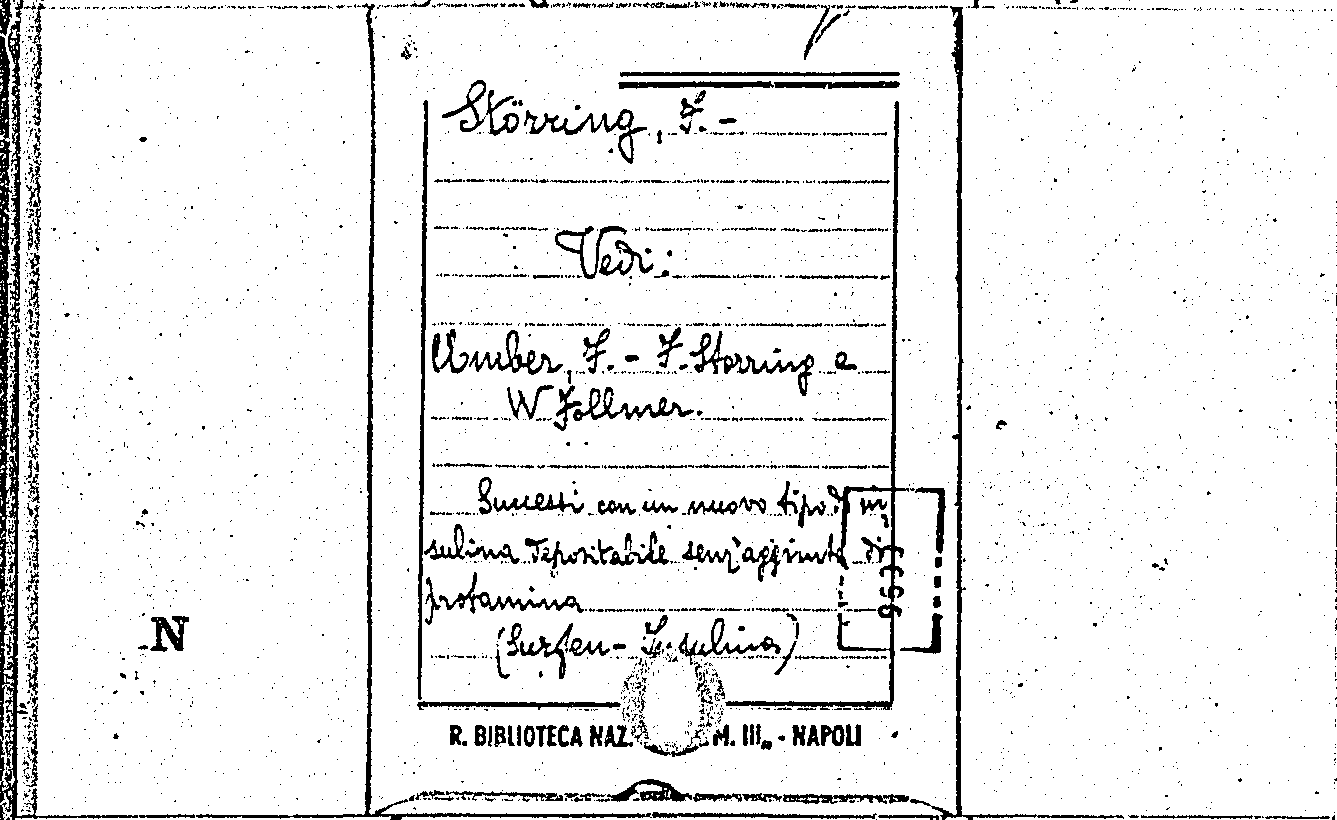 Störring, F. -
Vedi:
Umber, F. - F. Störring e
W Föllmer.
Successi con un nuovo tipo di in
sulina depositabile senz'aggiunta di
protamina
(Surfen - Insulina)
N
R. BIBLIOTECA NAZ. M. III„ - NAPOLI